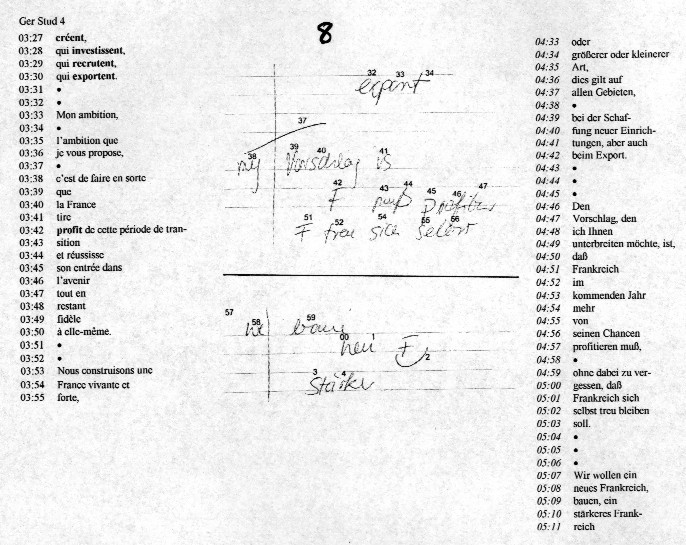 Ger Stud 4
8
03:27 créent,
03:28 qui investissent,
03:29 qui recrutent,
03:30 qui exportent.
03:31 •
03:32 •
03:33 Mon ambition,
03:34 •
03:35 l'ambition que
03:36 je vous propose,
03:37 •
03:38 c'est de faire en sorte
03:39 que
03:40 la France
03:41 tire
03:42 profit de cette période de tran-
03:43 sition
03:44 et réussisse
03:45 son entrée dans
03:46 l'avenir
03:47 tout en
03:48 restant
03:49 fidèle
03:50 à elle-même.
03:51 •
03:52 •
03:53 Nous construisons une
03:54 France vivante et
03:55 forte,
32 33 34
export
37
38 39 40 41
my Vorschlag is
42 43 44 45 46 47
F muß
51 52 54 55 56
F treu sich selbst
57 58 59
baue
00 1
neu F
2
3 4
Stärke
04:33 oder
04:34 größerer oder kleinerer
04:35 Art,
04:36 dies gilt auf
04:37 allen Gebieten,
04:38 •
04:39 bei der Schaf-
04:40 fung neuer Einrich-
04:41 tungen, aber auch
04:42 beim Export.
04:43 •
04:44 •
04:45 •
04:46 Den
04:47 Vorschlag, den
04:48 ich Ihnen
04:49 unterbreiten möchte, ist,
04:50 daß
04:51 Frankreich
04:52 im
04:53 kommenden Jahr
04:54 mehr
04:55 von
04:56 seinen Chancen
04:57 profitieren muß,
04:58 •
04:59 ohne dabei zu ver-
05:00 gessen, daß
05:01 Frankreich sich
05:02 selbst treu bleiben
05:03 soll.
05:04 •
05:05 •
05:06 •
05:07 Wir wollen ein
05:08 neues Frankreich,
05:09 bauen, ein
05:10 stärkeres Frank-
05:11 reich